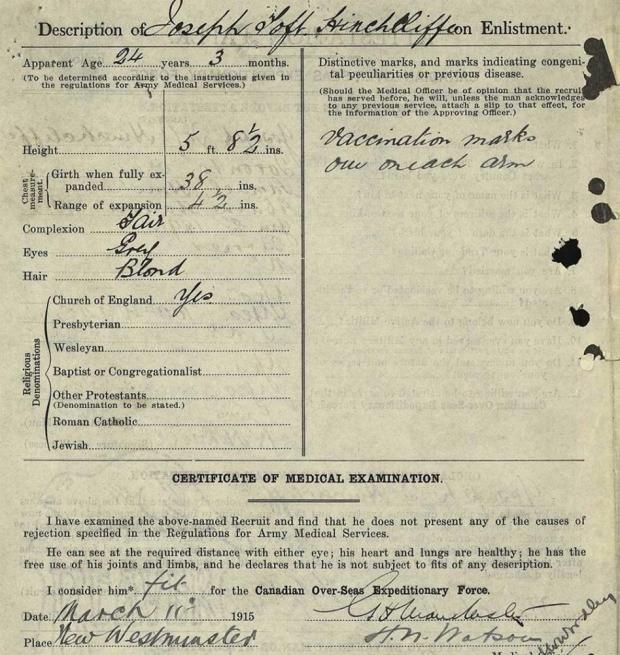 Description of Joseph Toft Hinchcliffe on Enlistment.
Apparent Age 24 years 3 months.
(To be determined according to the instructions given in
the regulations for Army Medical Services.)
Height 5 ft 8½ ins.
Chest measurement.
Girth when fully ex-
panded 38 ins.
Range of expansion 4½ ins.
Complexion Fair
Eyes Grey
Hair Blond
Religious Denominations
Church of England Yes
Presbyterian
Wesleyan
Baptist or Congregationalist
Other Protestants
(Denomination to be stated.)
Roman Catholic
Jewish
Distinctive marks, and marks indicating congeni-
tal peculiarities or previous disease.
(Should the Medical Officer be of opinion that the recruit
has served before, he will, unless the man acknowledges
to any previous service, attach a slip to that effect, for
the information of the Approving Officer.)
Vaccination marks
one on each arm
CERTIFICATE OF MEDICAL EXAMINATION.
I have examined the above-named Recruit and find that he does not present any of the causes of
rejection specified in the Regulations for Army Medical Services.
He can see at the required distance with either eye; his heart and lungs are healthy; he has the
free use of his joints and limbs, and he declares that he is not subject to fits of any description.
I consider him* fit for the Canadian Over-Seas Expeditionary Force.
Date March 11th 1915
Place New Westminster
H. N. Watson